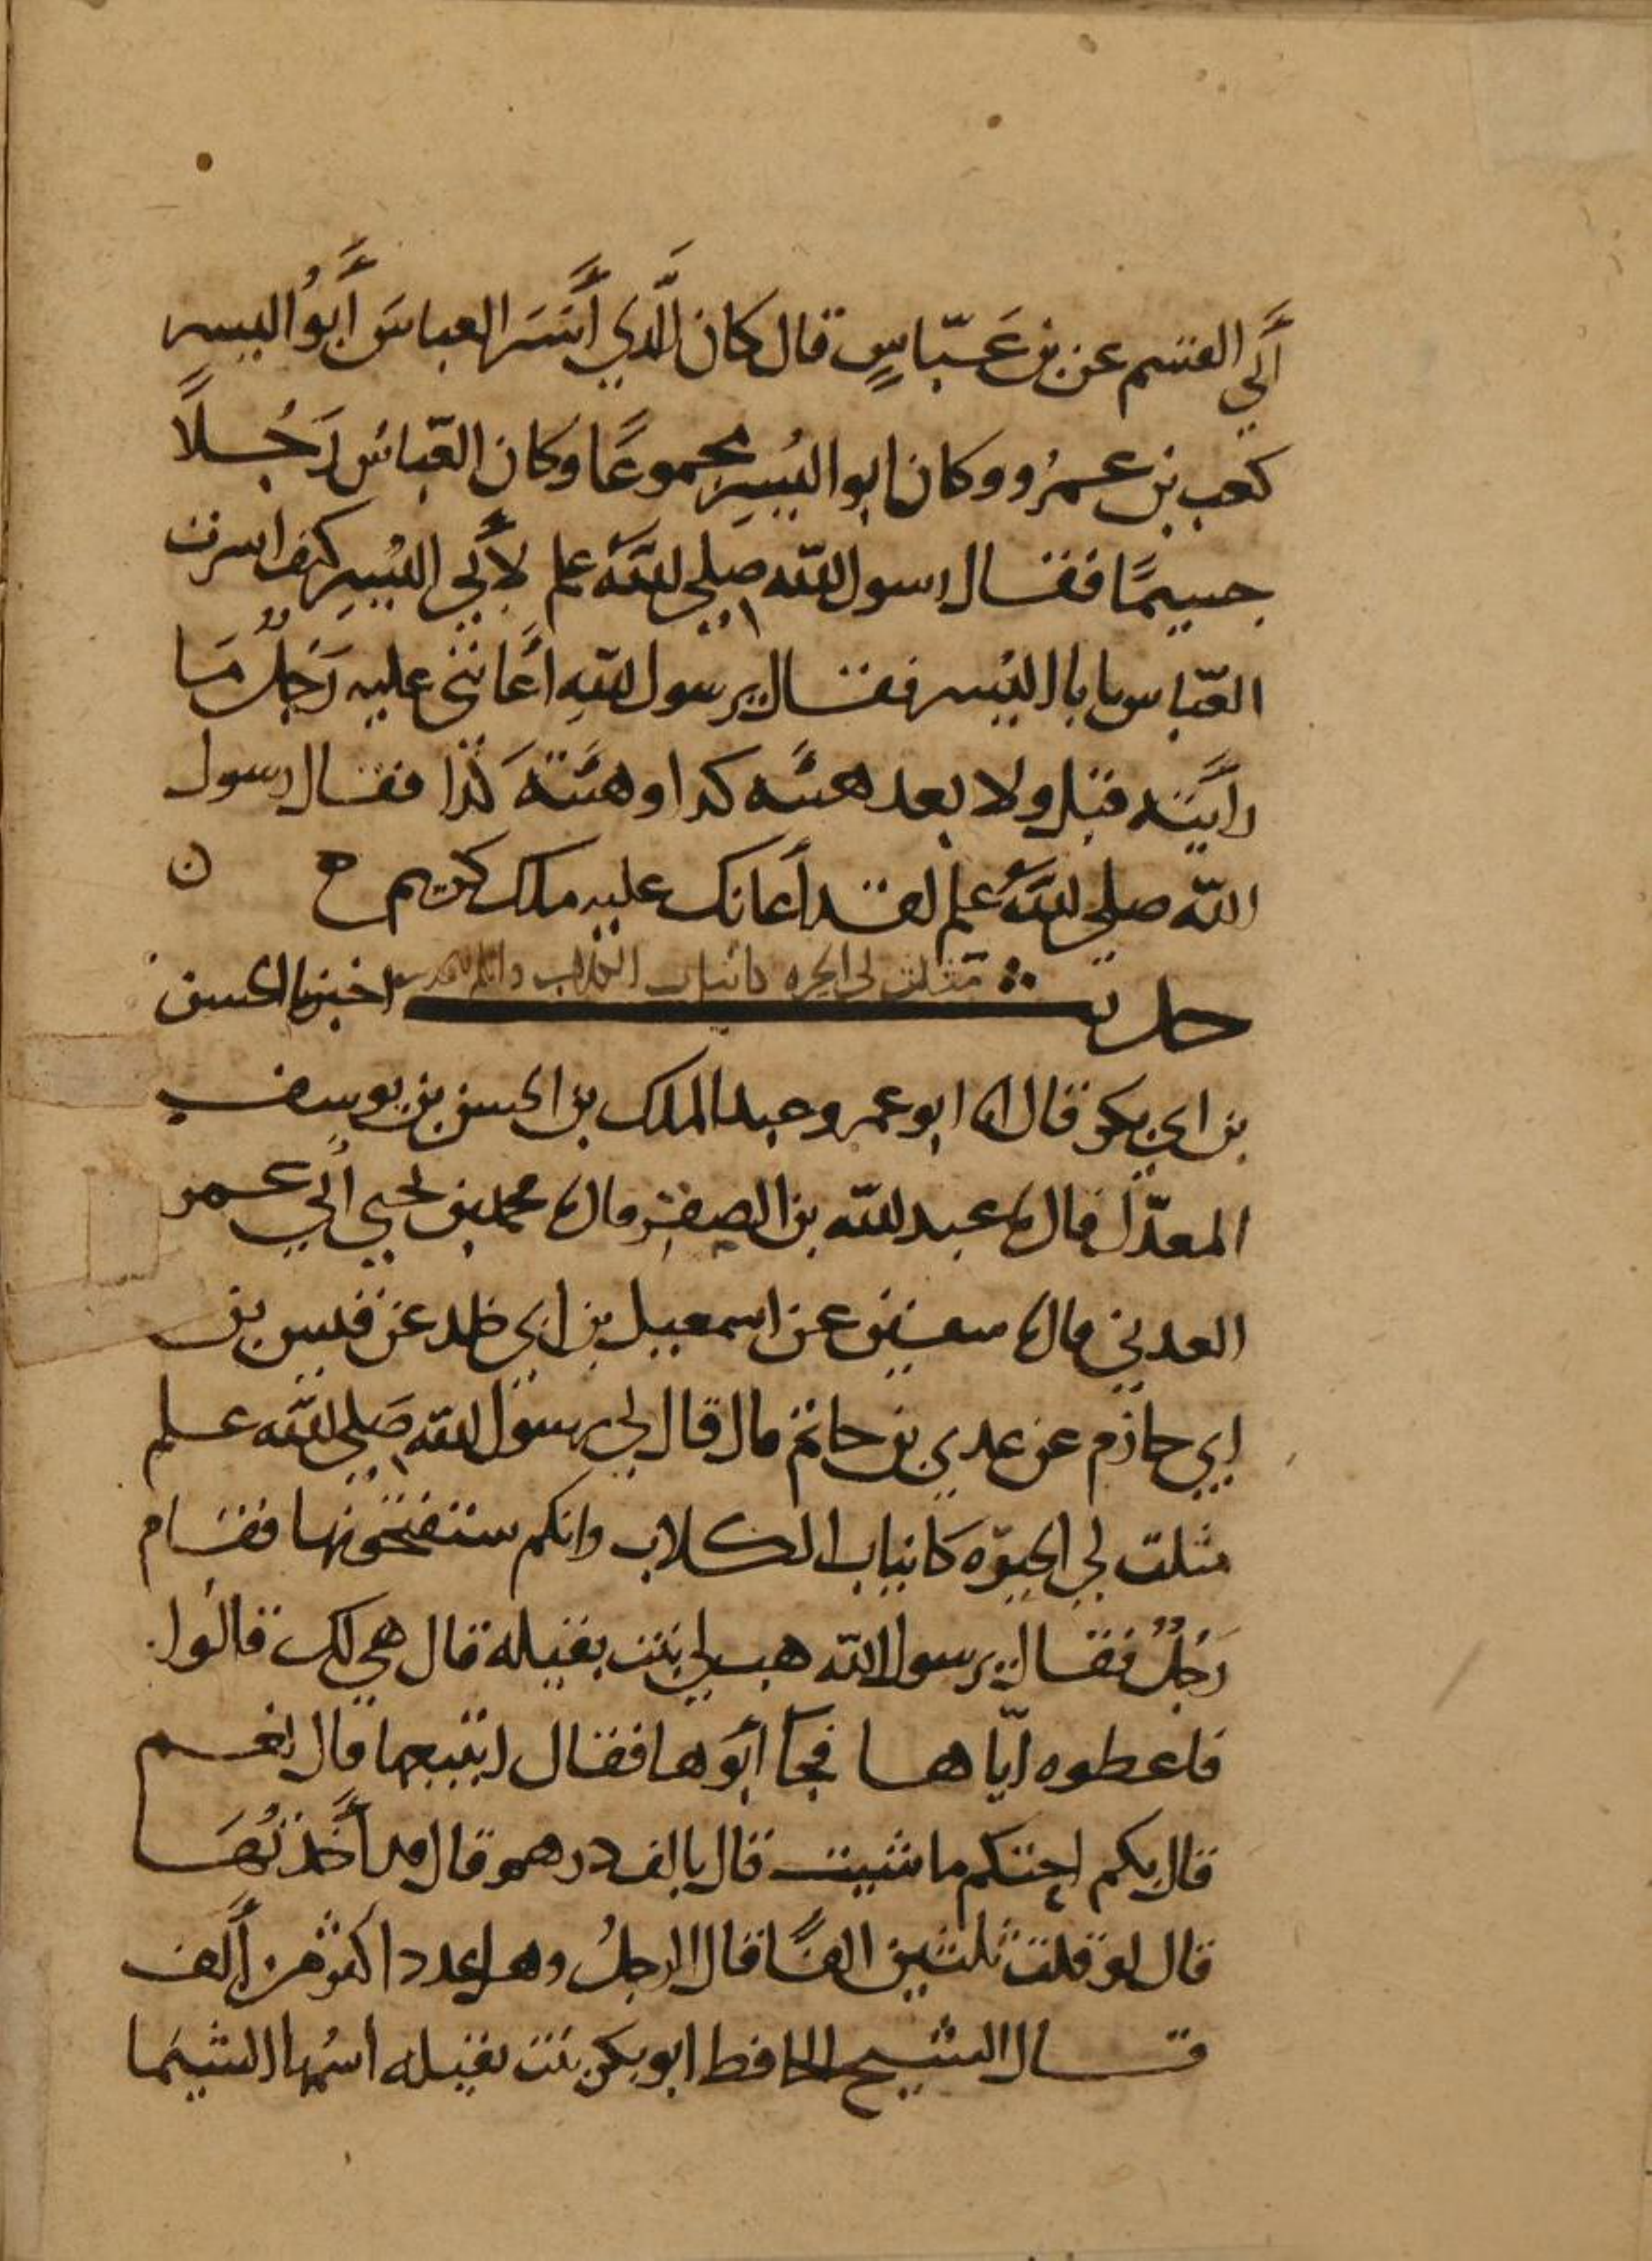 أَبي القسم عن بن عَبّاسٍ قال كان الَّذي أَسَرَ العباسَ أَبوُ اليسر
كعب بن عمرُو وكان ابو اليَسِر مجموعًا وكان العّباسُ رَجُلاً
جسيمًا فقال رسول اللّه صلي اللَّهُ علم لأَبي اليَسِرِ كيف اسرت
العّباس يابا اليَسر فقال يرسول اللّهِ أَعَانني عليه رَجُلٌ مَا
رأَيته قبل ولا بعد هيئَه كدا وهَيئَتهُ كَذا فقال رسول
اللّه صلي اللَّهُ علم لقد أَعانك عليه ملك كريم ح ن
حديث مثلت لي الحيره كانياب الكلاب وانكم اخبرنا الحسن
بن ابي بكر قال انا ابو عمرو عبد الملك بن الحسن بن يوسف
المعدّل قال نا عبد اللّه بن الصقر قال نا محمد بن يحيي أَبي عمر
العدني قال نا سفين عن اسمعيل بن ابي خلد عن قيس بن
ابي حازم عن عدي بن حاتم قال قال لي رسول اللّه صَلي اللّه علم
مثلت لي الحيوّه كَانياب الكلاب وانكم ستفتحونها فقام
رَجُلٌ فقال يرسول اللّه هب لي بنت بقيله قال هي لك قالوُا
فاعطوه ايّاها فجآ أَبوَها فقال اتبيعها قال نعم
قال بكم احتكم ما شيت قال بالف درهم قال قد أَخَذتُهَا
قال لو قلت ثلثين الفًا قال الرجلُ وهل عدد اكثر من أَلف
قال الشيخ الحافط ابو بكر بنت بقيله اسمُها الشيمَا